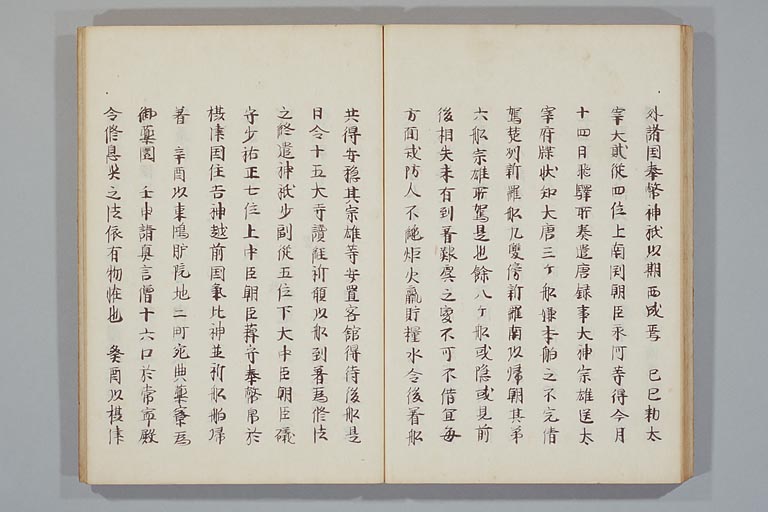 外諸国奉幣神祇以期西成焉　己巳勅太
宰大貳従四位上南渕朝臣永河等得今月
十四日飛驛所奏遣唐録事大神宗雄送太
宰府牒状知大唐三ケ船嫌本舶之不完倩
駕楚州新羅船九隻傍新羅南以帰朝其第
六船宗雄所駕是也餘八ケ船或隠或見前
後相失未有到着艱虞之変不可不備宜毎
方面戒防人不絶炬火贏貯糧水令後着船
共得安穏其宗雄等安置客館得待後船是
日令十五大寺讀経祈願以船到着為修法
之終遣神祇少副従五位下大中臣朝臣礒
守少祐正七位上中臣朝臣薭守奉幣帛於
摂津国住吉神越前国氣比神並祈船舶帰
着　辛酉以東鴻臚院地二町充典薬寮為
御薬園　壬申請真言僧十六口於常寧殿
令修息災之法依有物恠也　癸酉以摂津